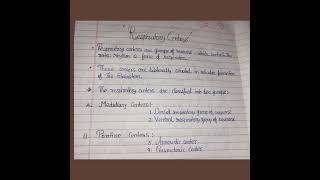 "Respiratory Centers"
Respiratory centers are groups of neurons which controls the
rate, rhythm & force of respiration.
These centers are bilaterally situated in reticular formation
of the Brainstem.
The respiratory centers are classified into two groups:
A. Medullary Centers:
1. Dorsal respiratory group of neurons
2. Ventral respiratory group of neurons
B) Pontine Centers:
3. Apneustic center
4. Pneumotaxic center